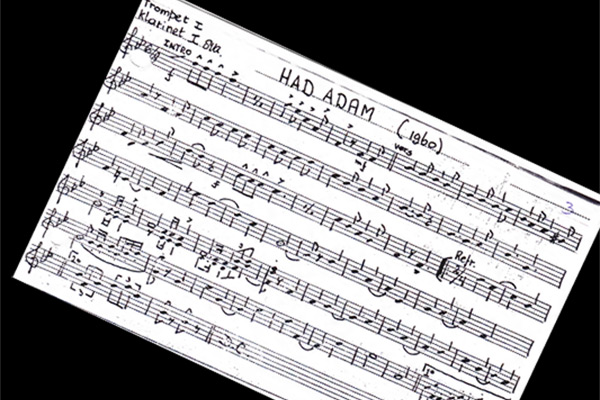 Trompet I
Klarinet I Bb.
INTRO
HAD ADAM (1960)
vers
mf
3
f
Refr.
D.C.